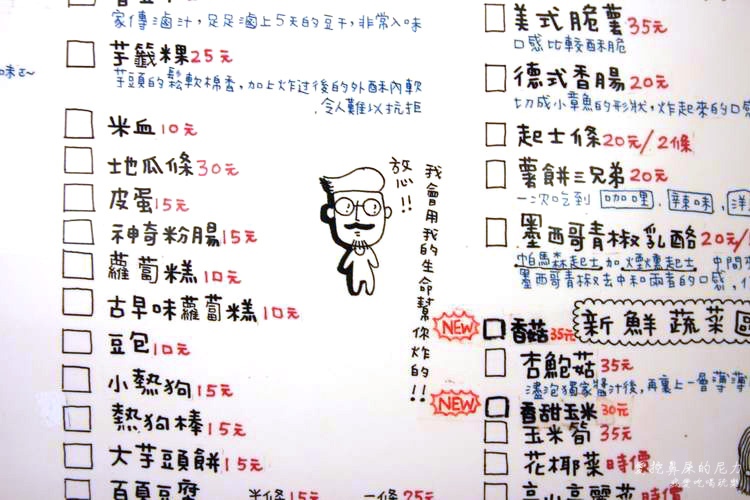 家傳滷汁,足足滷上5天的豆干,非常入味
芋籤粿25元
芋頭的鬆軟棉香,加上炸过後的外酥內軟
令人難以抗拒
米血10元
地瓜條30元
皮蛋15元
神奇粉腸15元
蘿蔔糕10元
古早味蘿蔔糕10元
豆包10元
小熱狗15元
熱狗棒15元
大芋頭餅15元
百頁豆腐 半條15元 一條25元
放心!!
我會用我的生命幫你炸的!!
美式脆薯35元
口感比較酥脆
德式香腸20元
切成小章魚的形狀,炸起來的口感
起士條20元/2條
薯餅三兄弟20元
一次吃到 咖哩, 辣味, 洋
墨西哥青椒乳酪20元/
帕馬森起士加煙燻起士 中間
墨西哥青椒去中和兩者的口感,
新鮮蔬菜區
NEW 香菇35元
杏鮑菇35元
浸泡獨家醬汁後,再裹上一層薄薄
NEW 香甜玉米30元
玉米筍35元
花椰菜時價
高山高麗菜時價
挖鼻屎的尼力